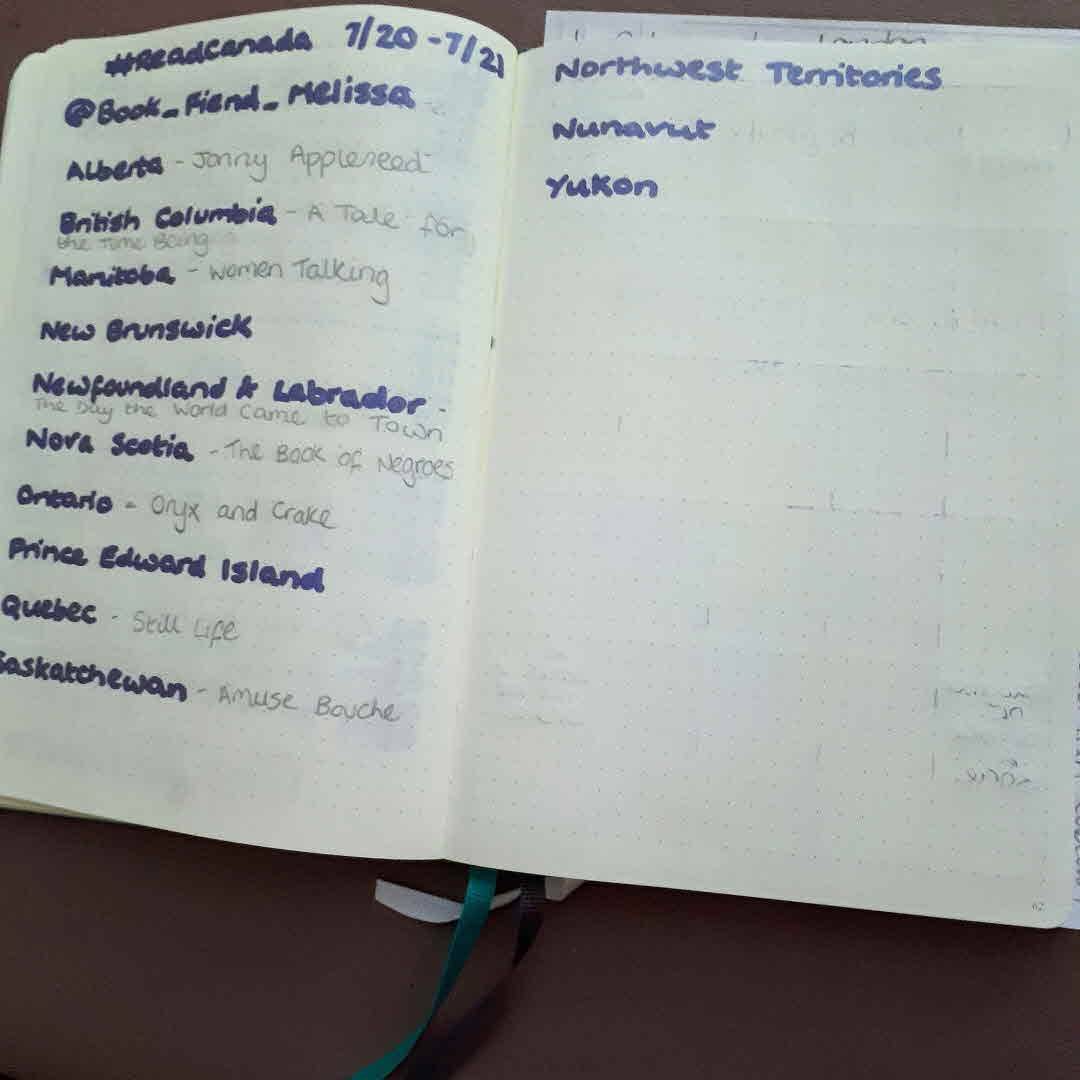 #ReadCanada 7/20 - 7/21
@Book_Fiend_Melissa
Alberta - Jonny Appleseed
British Columbia - A Tale for
the Time Being
Manitoba - Women Talking
New Brunswick
Newfoundland & Labrador -
The Day the World Came to Town
Nova Scotia - The Book of Negroes
Ontario - Oryx and Crake
Prince Edward Island
Quebec - Still Life
Saskatchewan - Amuse Bouche
Northwest Territories
Nunavut
Yukon